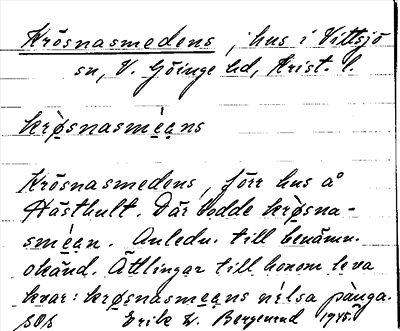 Krösnasmedens, hus i Vittsjö
sn, V. Göinge hd, Krist. l.
krø̀snasmé̱a̱ns
Krösnasmedens, förr hus å
Hästhult. Där bodde krø̀sna-
smé̱a̱n. Anledn. till benämn.
okänd. Ättlingar till honom leva
kvar: krø̀snasme̱a̱ns nélsa pànga.
SOS Erik W. Bergerud 1945.